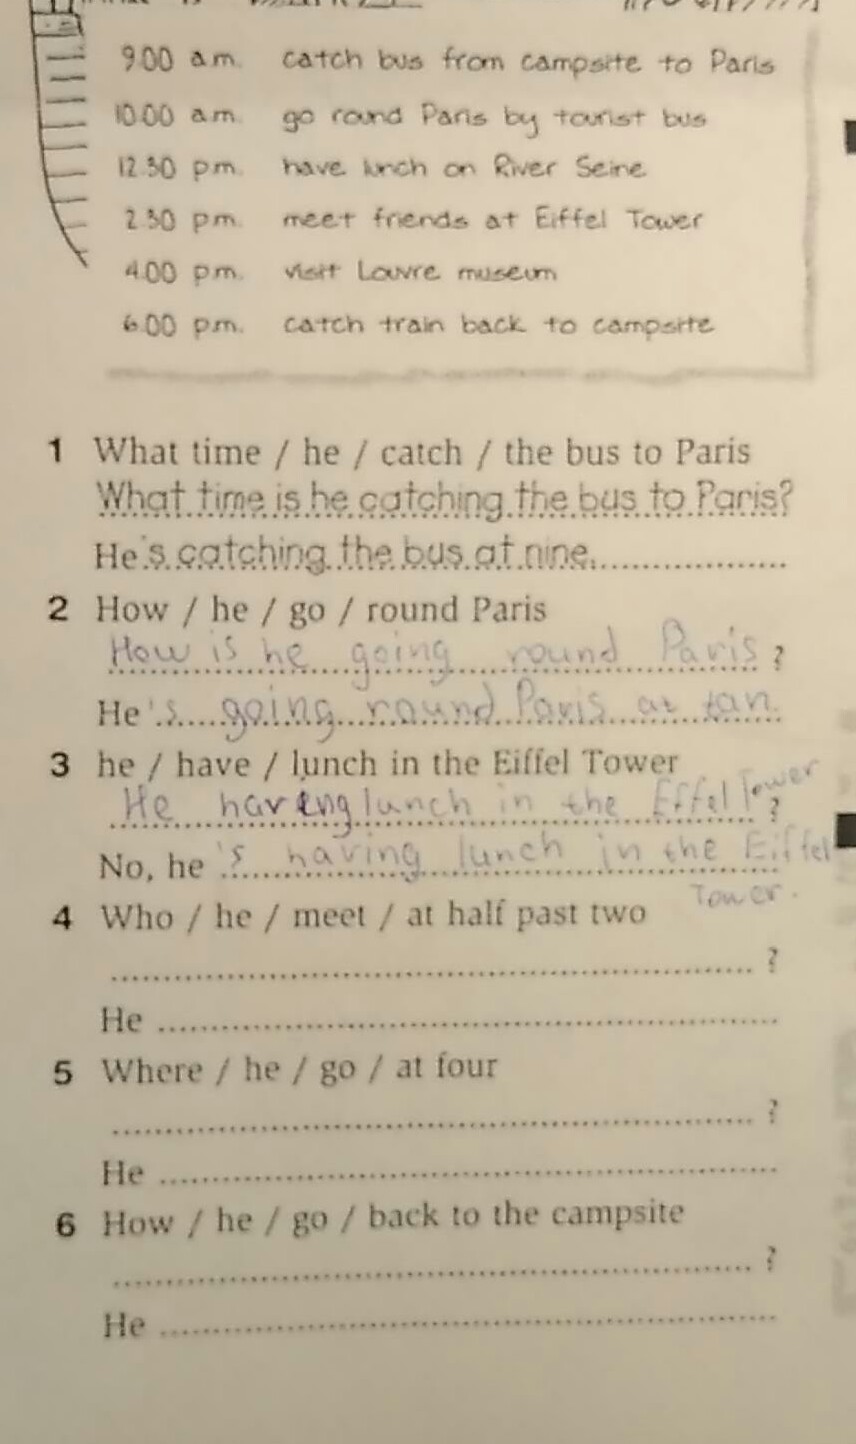 9.00 a.m. catch bus from campsite to Paris
10.00 a.m. go round Paris by tourist bus
12.30 p.m. have lunch on River Seine
2.30 p.m. meet friends at Eiffel Tower
4.00 p.m. visit Louvre museum
6.00 p.m. catch train back to campsite
1 What time / he / catch / the bus to Paris
What time is he catching the bus to Paris?
He's catching the bus at nine.
2 How / he / go / round Paris
How is he going round Paris ?
He 's going round Paris at tan.
3 he / have / lunch in the Eiffel Tower
He haveng lunch in the Effel Tower ?
No, he 's having lunch in the Eiffel
Tower.
4 Who / he / meet / at half past two
?
He
5 Where / he / go / at four
?
He
6 How / he / go / back to the campsite
?
He